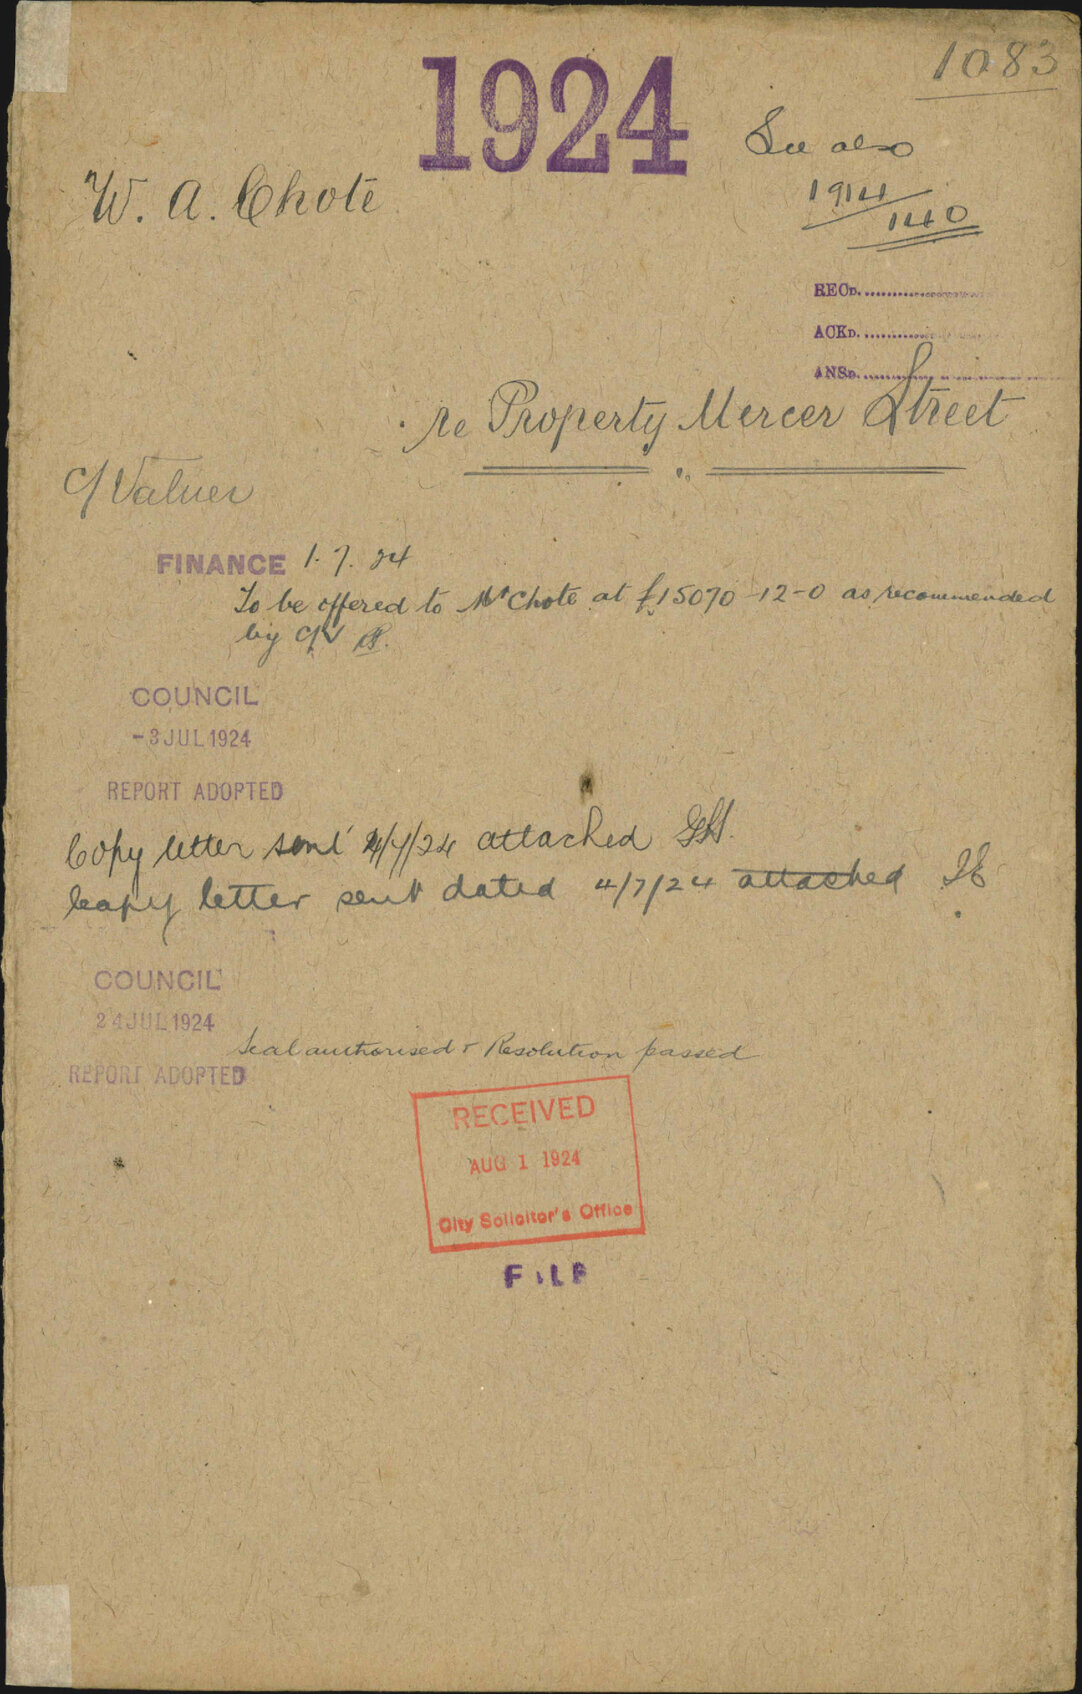 1083
1924
See also
1914
140
W. A. Chote
RECD.
ACKD.
ANSD.
re Property Mercer Street
C/Valuer
FINANCE 1.7.24
To be offered to Mr Chote at £15070-12-0 as recommended
by C/V
COUNCIL
-3 JUL 1924
REPORT ADOPTED
Copy letter sent 4/7/24 attached
Copy letter sent dated 4/7/24 attached
COUNCIL
24 JUL 1924
Seal authorised & Resolution passed
REPORT ADOPTED
RECEIVED
AUG 1 1924
City Solicitor's Office
FILE